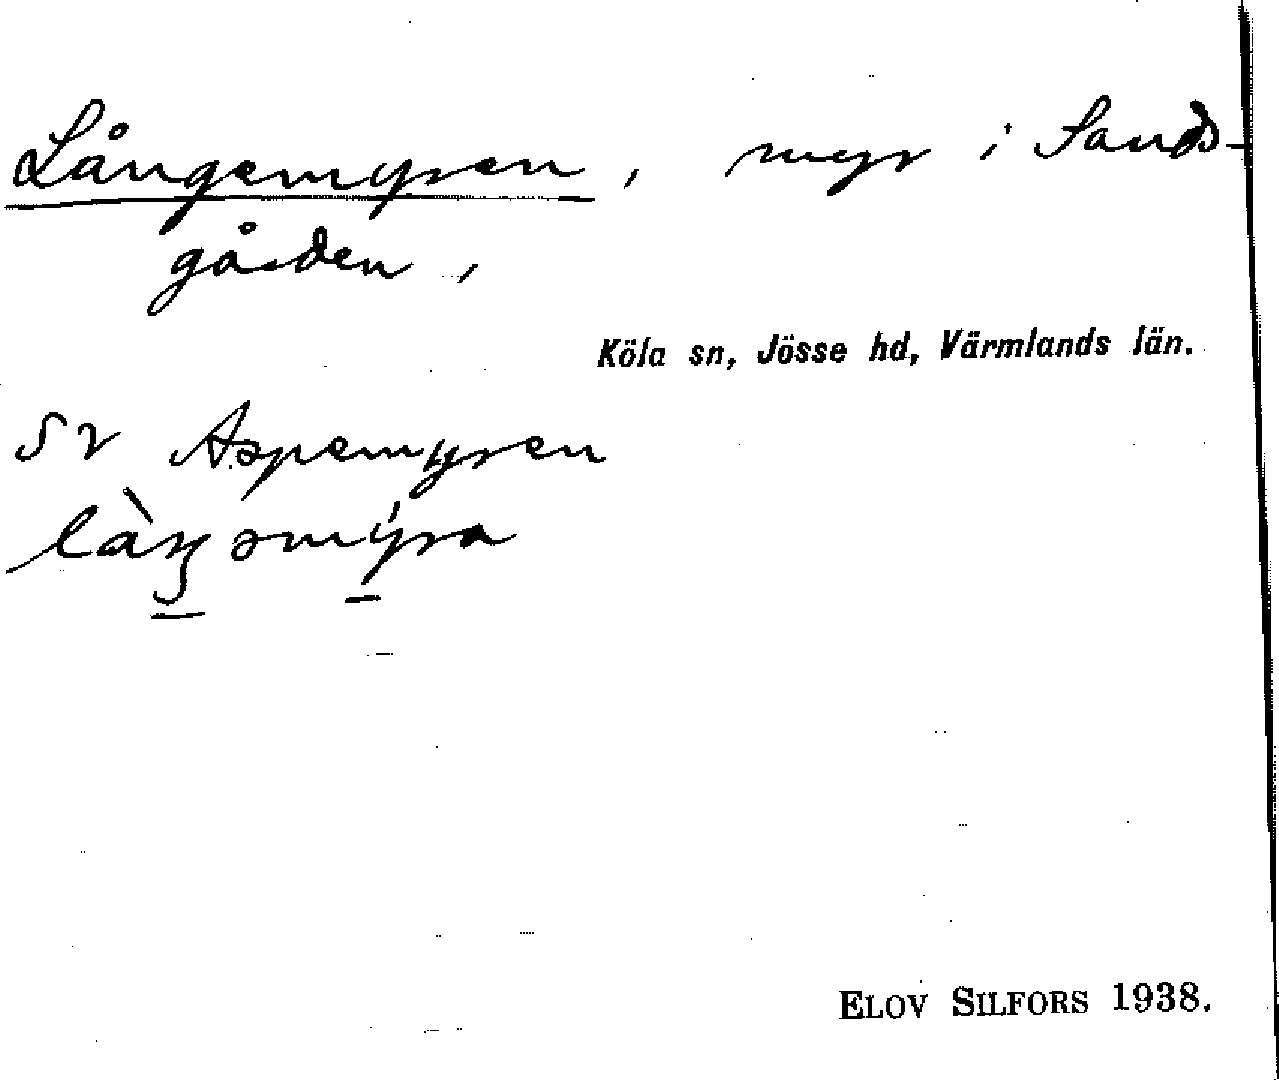 Långemyren, myr i Sands-
gården,
Köla sn, Jösse hd, Värmlands län.
SV Aspemyren
ELOV SILFORS 1938.